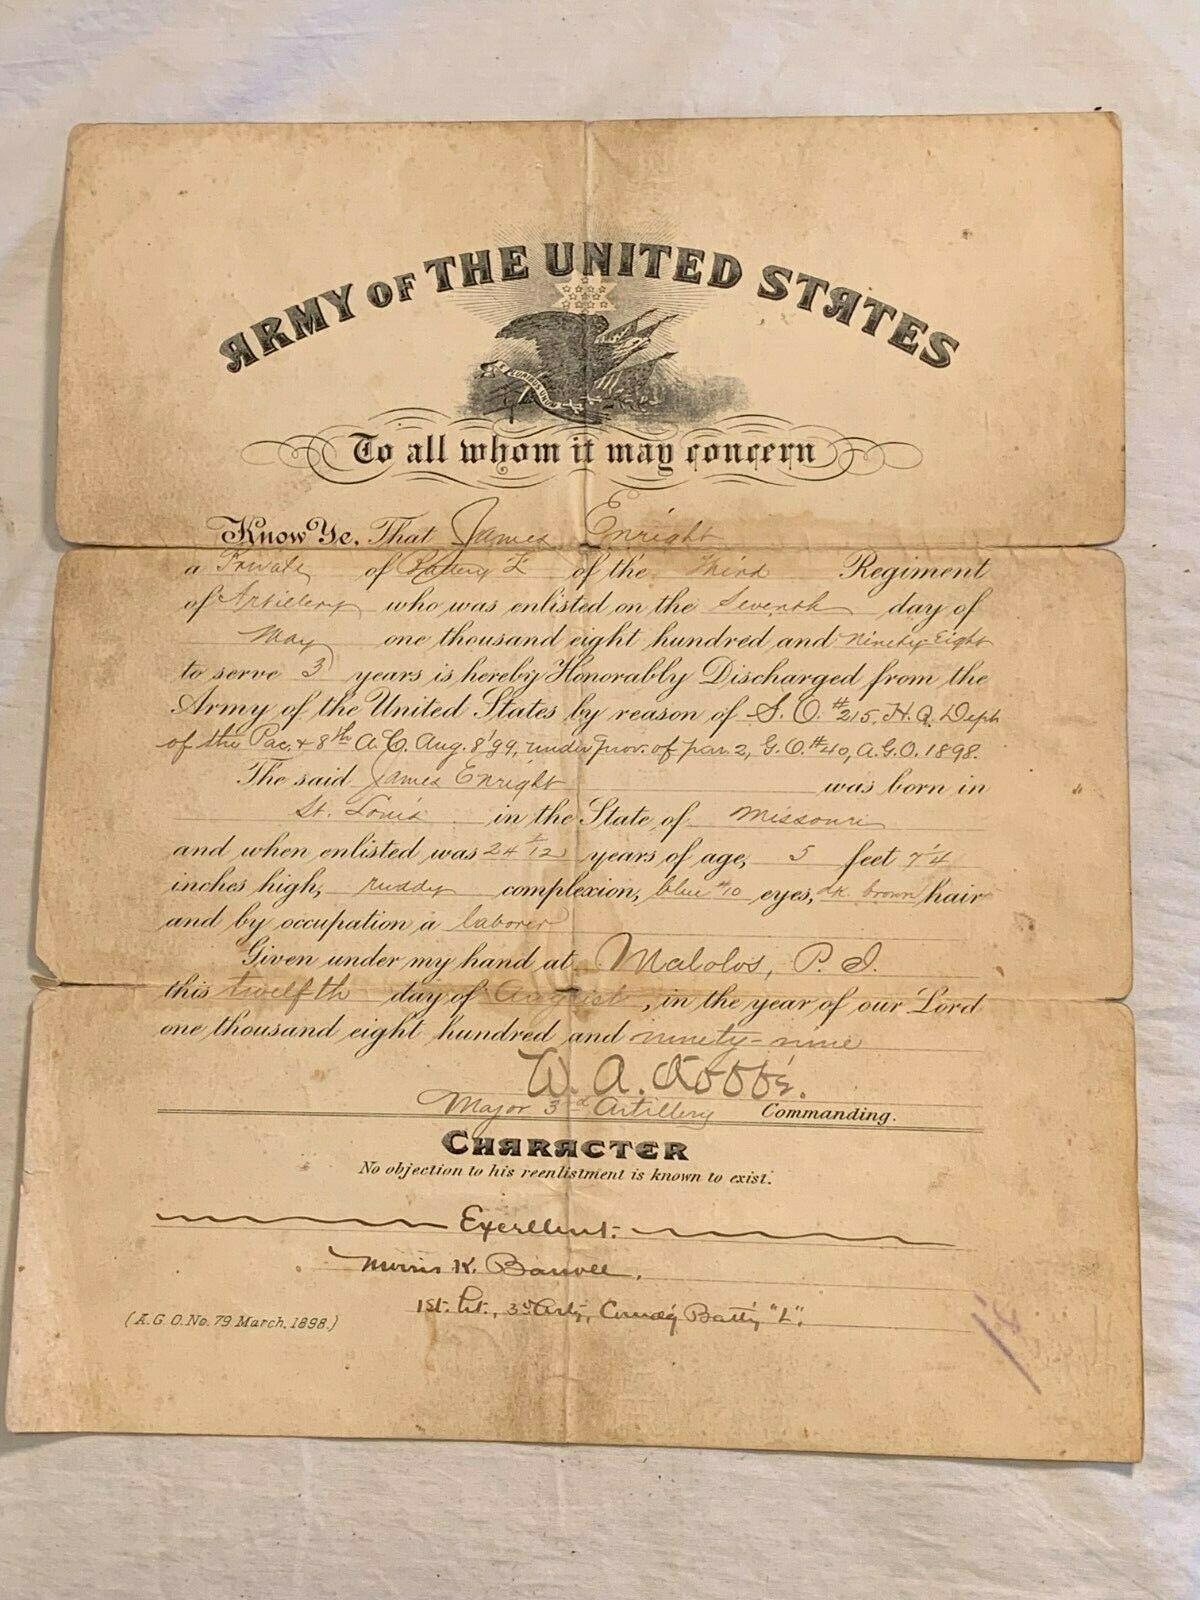 ARMY OF THE UNITED STATES
E PLURIBUS UNUM
To all whom it may concern
Know Ye, That James Enright
a Private of Battery L of the Third Regiment
of Artillery who was enlisted on the Seventh day of
May one thousand eight hundred and Ninety-Eight
to serve 3 years is hereby Honorably Discharged from the
Army of the United States by reason of S. O. #215, H. Q. Dept
of the Pac. & 8th A. C. Aug. 8 '99, under prov. of par. 2, G. O. #40, A. G. O. 1898.
The said James Enright was born in
St. Louis in the State of Missouri
and when enlisted was 24 /12 years of age, 5 feet 7 4
inches high, ruddy complexion, blue #10 eyes, dk. brown hair
and by occupation a laborer
Given under my hand at Malolos, P. I.
this twelfth day of August, in the year of our Lord
one thousand eight hundred and ninety-nine
W. A. Kobbé.
Major 3rd Artillery Commanding.
CHARACTER
No objection to his reenlistment is known to exist.
Excellent.
Morris K. Barroll,
1st. Lt., 3rd Arty, Comd'g Batt'y "L".
(A. G. O. No. 79 March, 1898.)